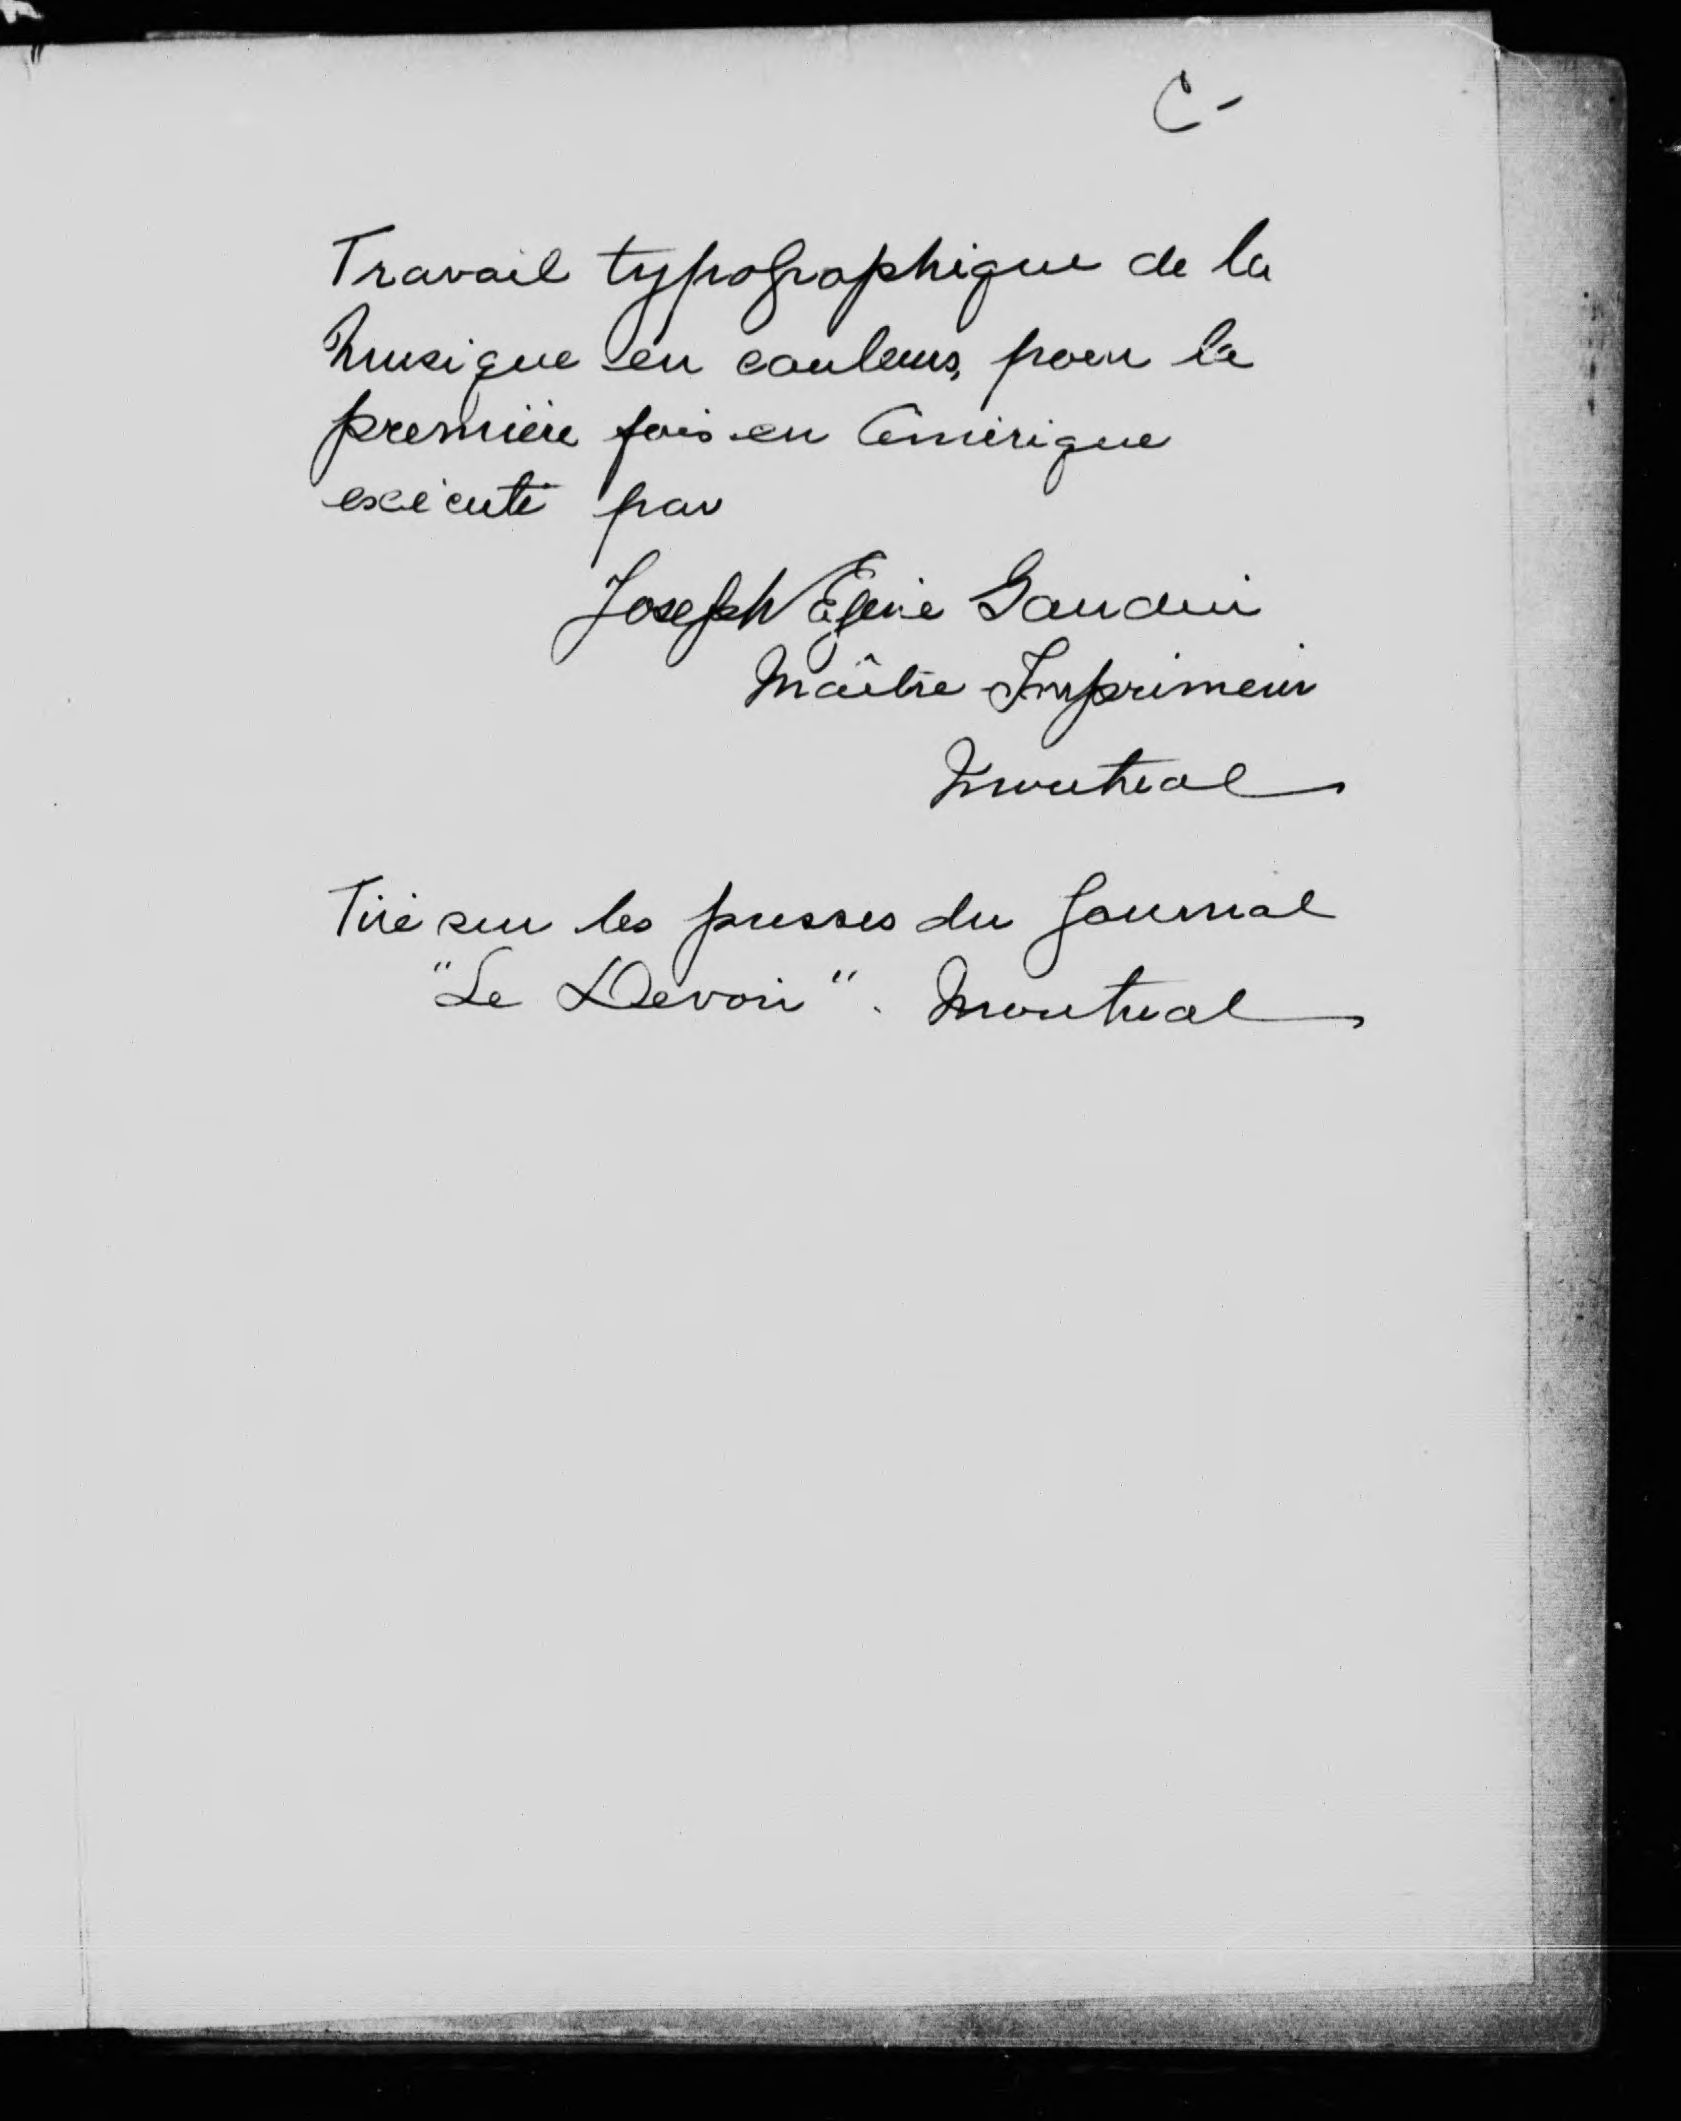 C -
Travail typographique de la
Musique en couleurs, pour la
première fois en Amérique
exécuté par
Joseph Gaudin
Maître Imprimeur
Montreal
Tiré sur les presses du Journal
"Le Devoir". Montreal